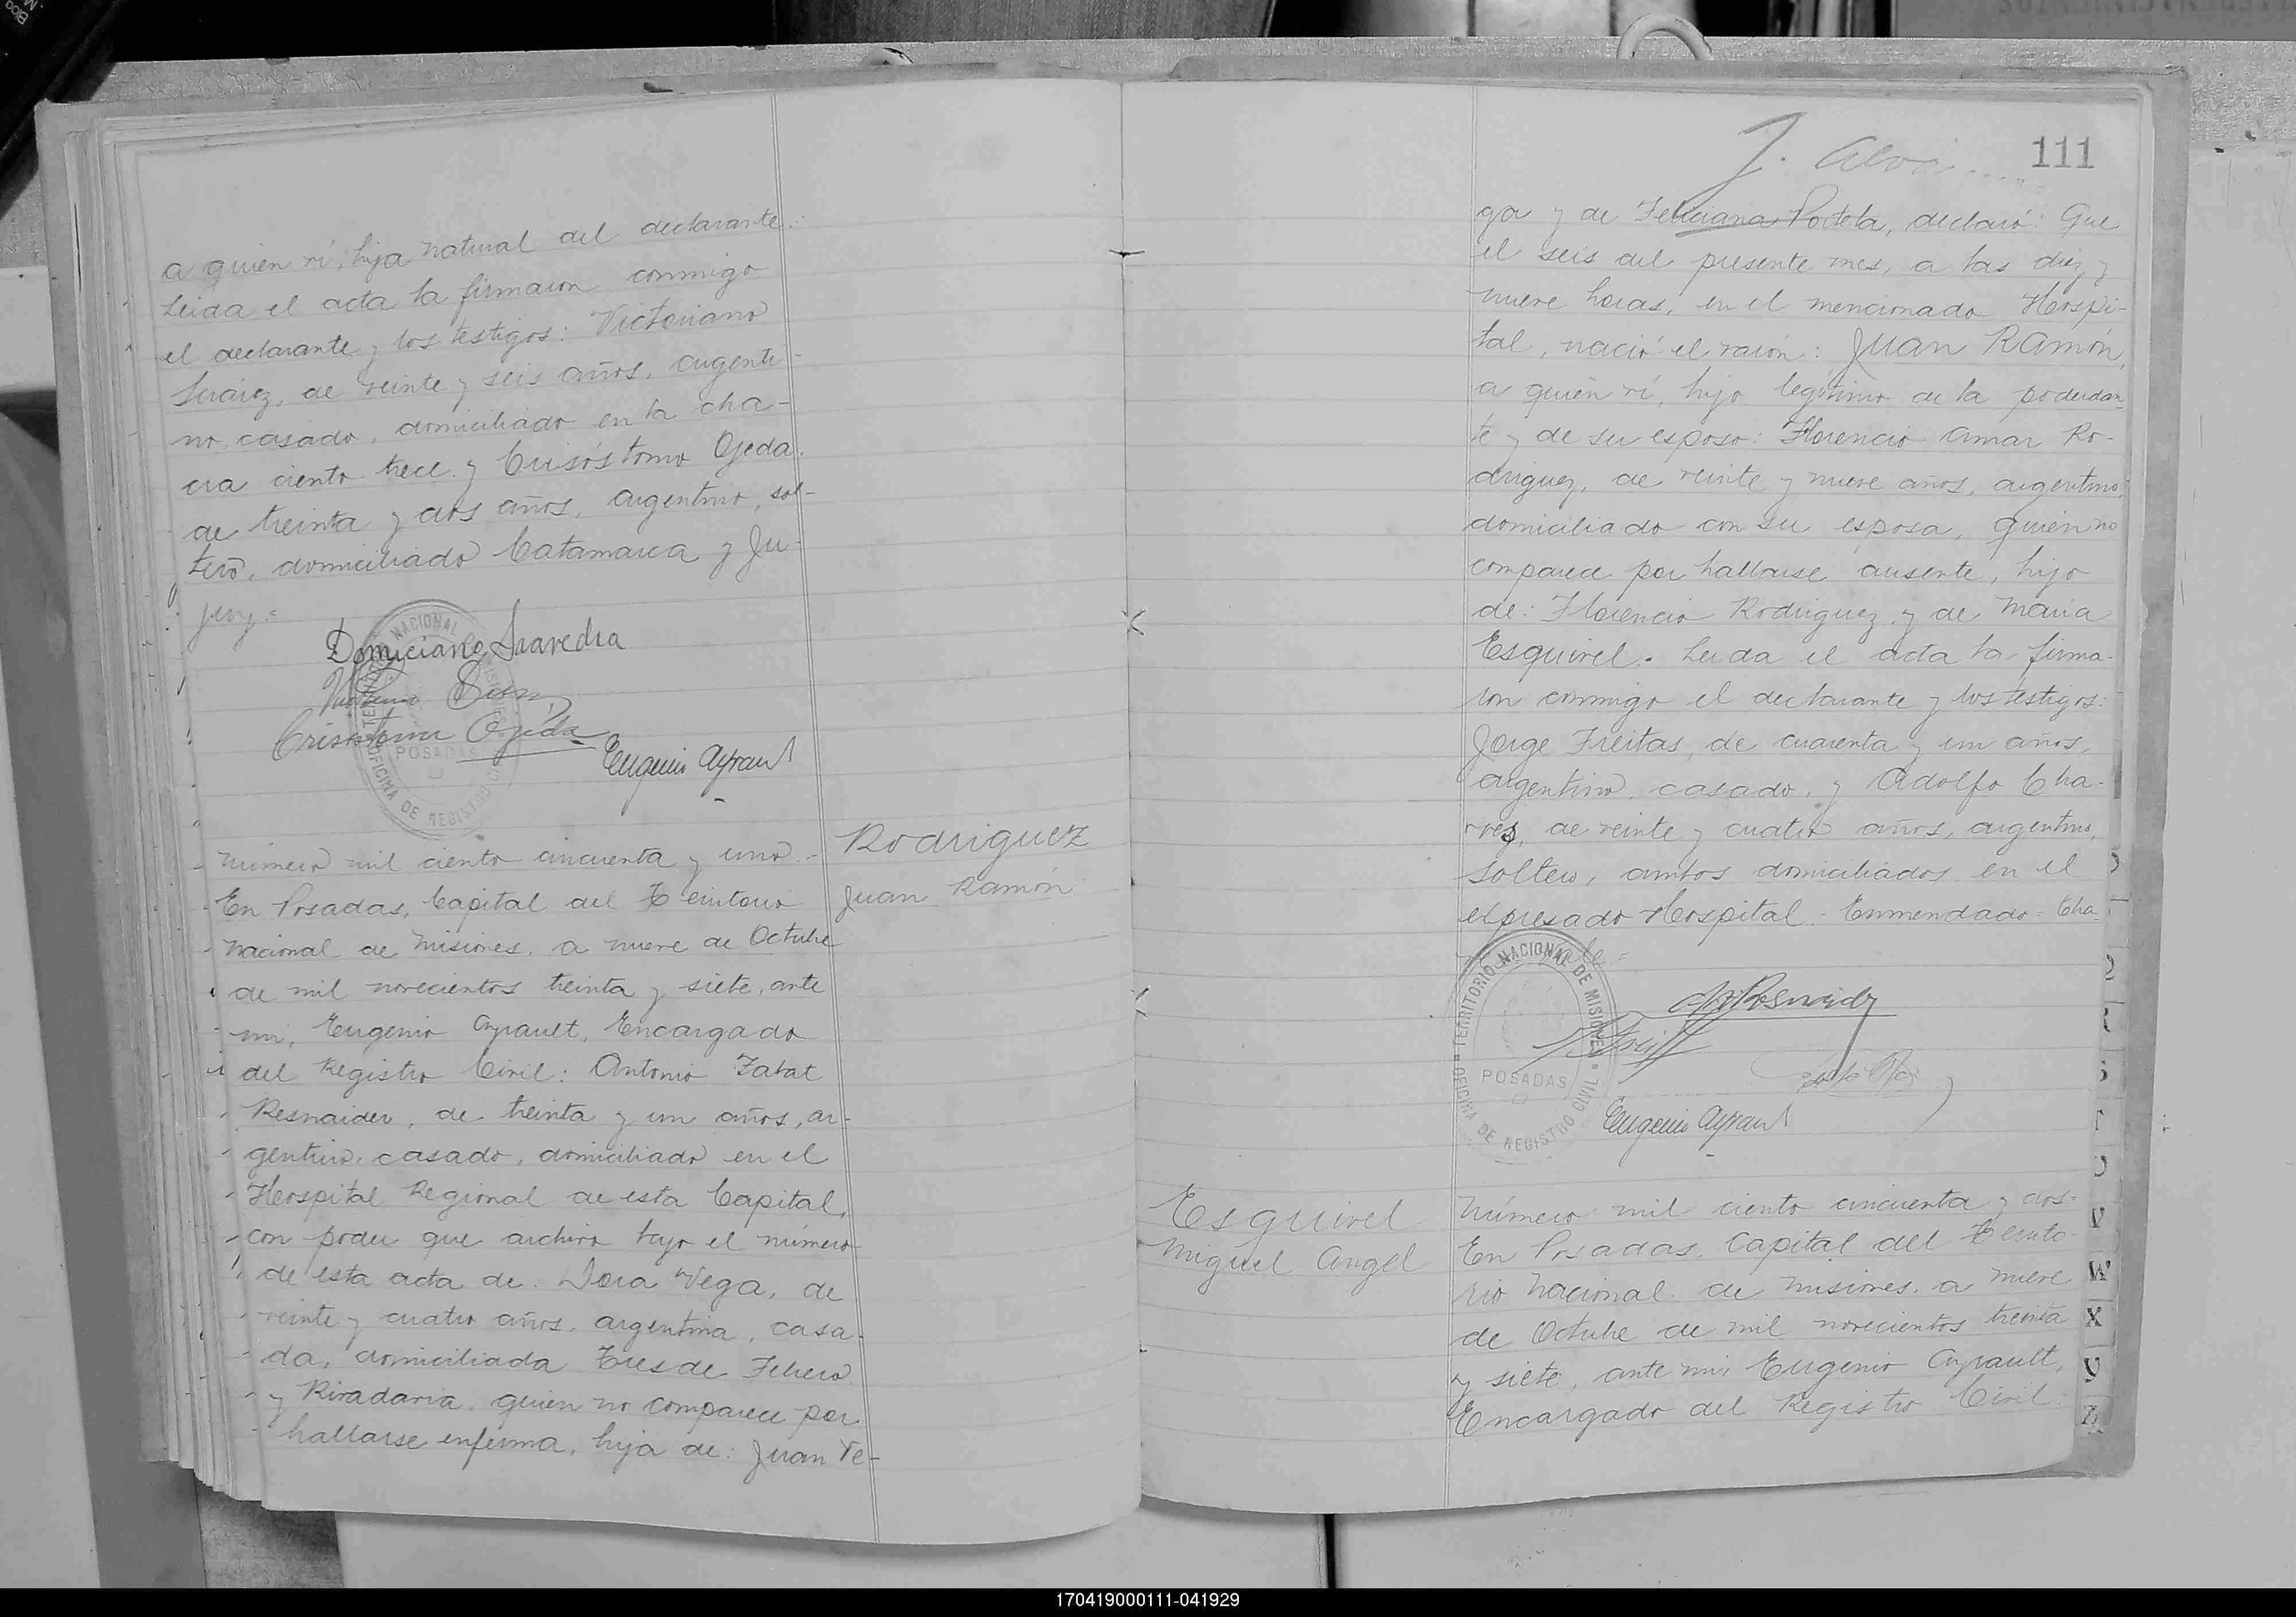 a quien ví, hija natural del declarante.
Leida el acta la firmaron conmigo
el declarante y los testigos: Victoriano
Suárez, de veinte y seis años, argenti-
no, casado, domiciliado en la cha-
cra ciento trece y Crisóstomo Ojeda,
de treinta y dos años, argentino, sol-
tero, domiciliado Catamarca y Ju-
juy=
Domiciano Saavedra
Crisóstomo Ojeda
Eugenio Ayrault
TERRITORIO NACIONAL DE MISIONES
POSADAS
OFICINA DE REGISTRO CIVIL
Número mil ciento cincuenta y uno.-
En Posadas, Capital del Territorio
Nacional de Misiones, a nueve de Octubre
de mil novecientos treinta y siete, ante
mi, Eugenio Ayrault, Encargado
del Registro Civil: Antonio
Resnaider, de treinta y un años, ar-
gentino, casado, domiciliado en el
Hospital Regional de esta Capital,
con poder que archivo bajo el número
de esta acta de: Dora Vega, de
veinte y cuatro años, argentina, casa-
da, domiciliada Tres de Febrero
y Rivadavia, quien no comparece por
hallarse enferma, hija de: Juan Ve-
Rodriguez
Juan Ramón
J.
111
ga y de Feliciana Portela, declaró: Que
el seis del presente mes, a las diez y
nueve horas, en el mencionado Hospi-
tal, nació el varón: Juan Ramón,
a quien ví, hijo legítimo de la poderdan-
te y de su esposo: Florencio Omar Ro-
driguez, de veinte y nueve años, argentino,
domiciliado con su esposa, quien no
comparece por hallarse ausente, hijo
de: Florencio Rodriguez y de Maria
Esquivel. Leida el acta la firma-
ron conmigo el declarante y los testigos:
Jorge Freitas, de cuarenta y un años,
argentino, casado, y Adolfo Cha-
ves, de veinte y cuatro años, argentino,
soltero, ambos domiciliados en el
expresado Hospital.- Enmendado= Cha-
vale=
TERRITORIO NACIONAL DE MISIONES
POSADAS
OFICINA DE REGISTRO CIVIL
Eugenio Ayrault
Esquivel
Miguel Angel
Número mil ciento cincuenta y dos=
En Posadas, Capital del Territo-
rio Nacional de Misiones, a nueve
de Octubre de mil novecientos treinta
y siete, ante mi, Eugenio Ayrault,
Encargado del Registro Civil:
V
W
X
Y
Z
170419000111-041929